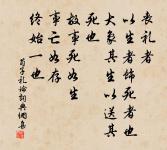 喪礼者
以生者飾死者也
大象其生以送其
死也
故事死如生
事亡如存
終始一也
荀子礼論詞典網集